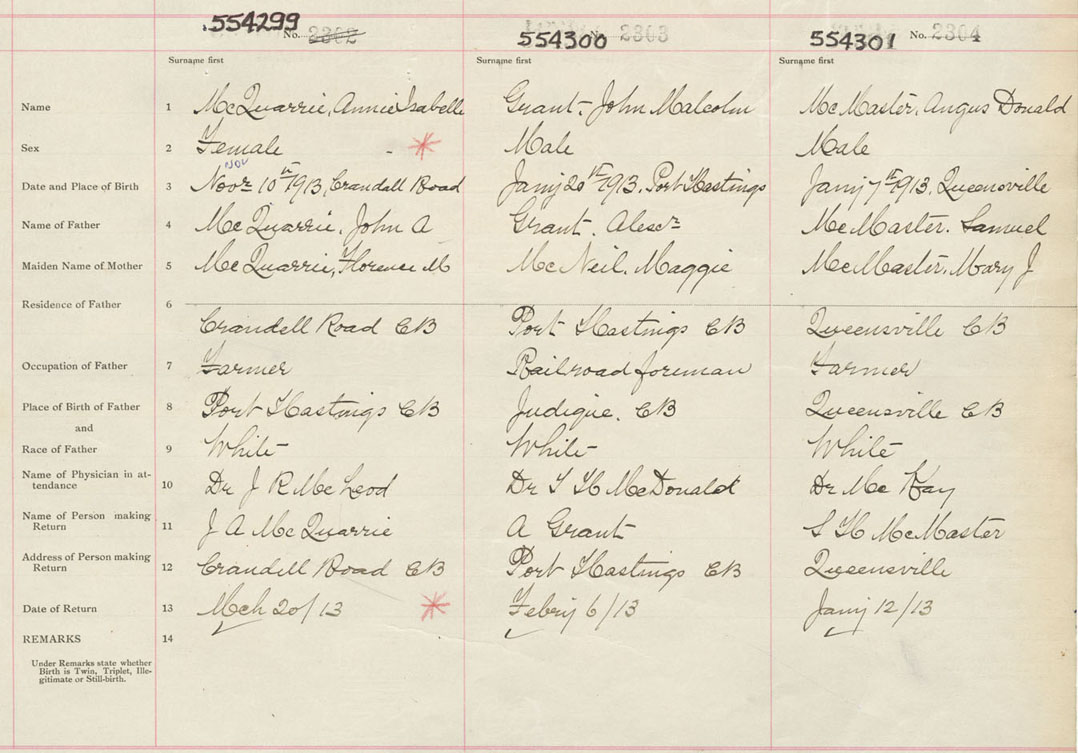 554299 No. 2302 554300 No. 2303 554301 No. 2304
Surname first Surname first Surname first
Name 1 McQuarrie, Annie Isabelle Grant. John Malcolm McMaster. Angus Donald
Sex 2 Female - * Male Male
Nov
Date and Place of Birth 3 Novr 10th 1913, Crandall Road Jany 20th 1913. Port Hastings Jany 7th 1913. Queensville
Name of Father 4 McQuarrie. John A Grant. Alexr McMaster. Samuel
Maiden Name of Mother 5 McQuarrie, Florence M McNeil. Maggie McMaster. Mary J
Residence of Father 6
Crandell Road CB Port Hastings CB Queensville CB
Occupation of Father 7 Farmer Railroad foreman Farmer
Place of Birth of Father 8 Port Hastings CB Judique. CB Queensville CB
and
Race of Father 9 White White White
Name of Physician in at-
tendance 10 Dr J R McLeod Dr T H McDonald Dr McKay
Name of Person making
Return 11 J A McQuarrie A Grant S H McMaster
Address of Person making
Return 12 Crandell Road CB Port Hastings CB Queensville
Date of Return 13 Mch 20/13 * Febry 6/13 Jany 12/13
REMARKS 14
Under Remarks state whether
Birth is Twin, Triplet, Ille-
gitimate or Still-birth.